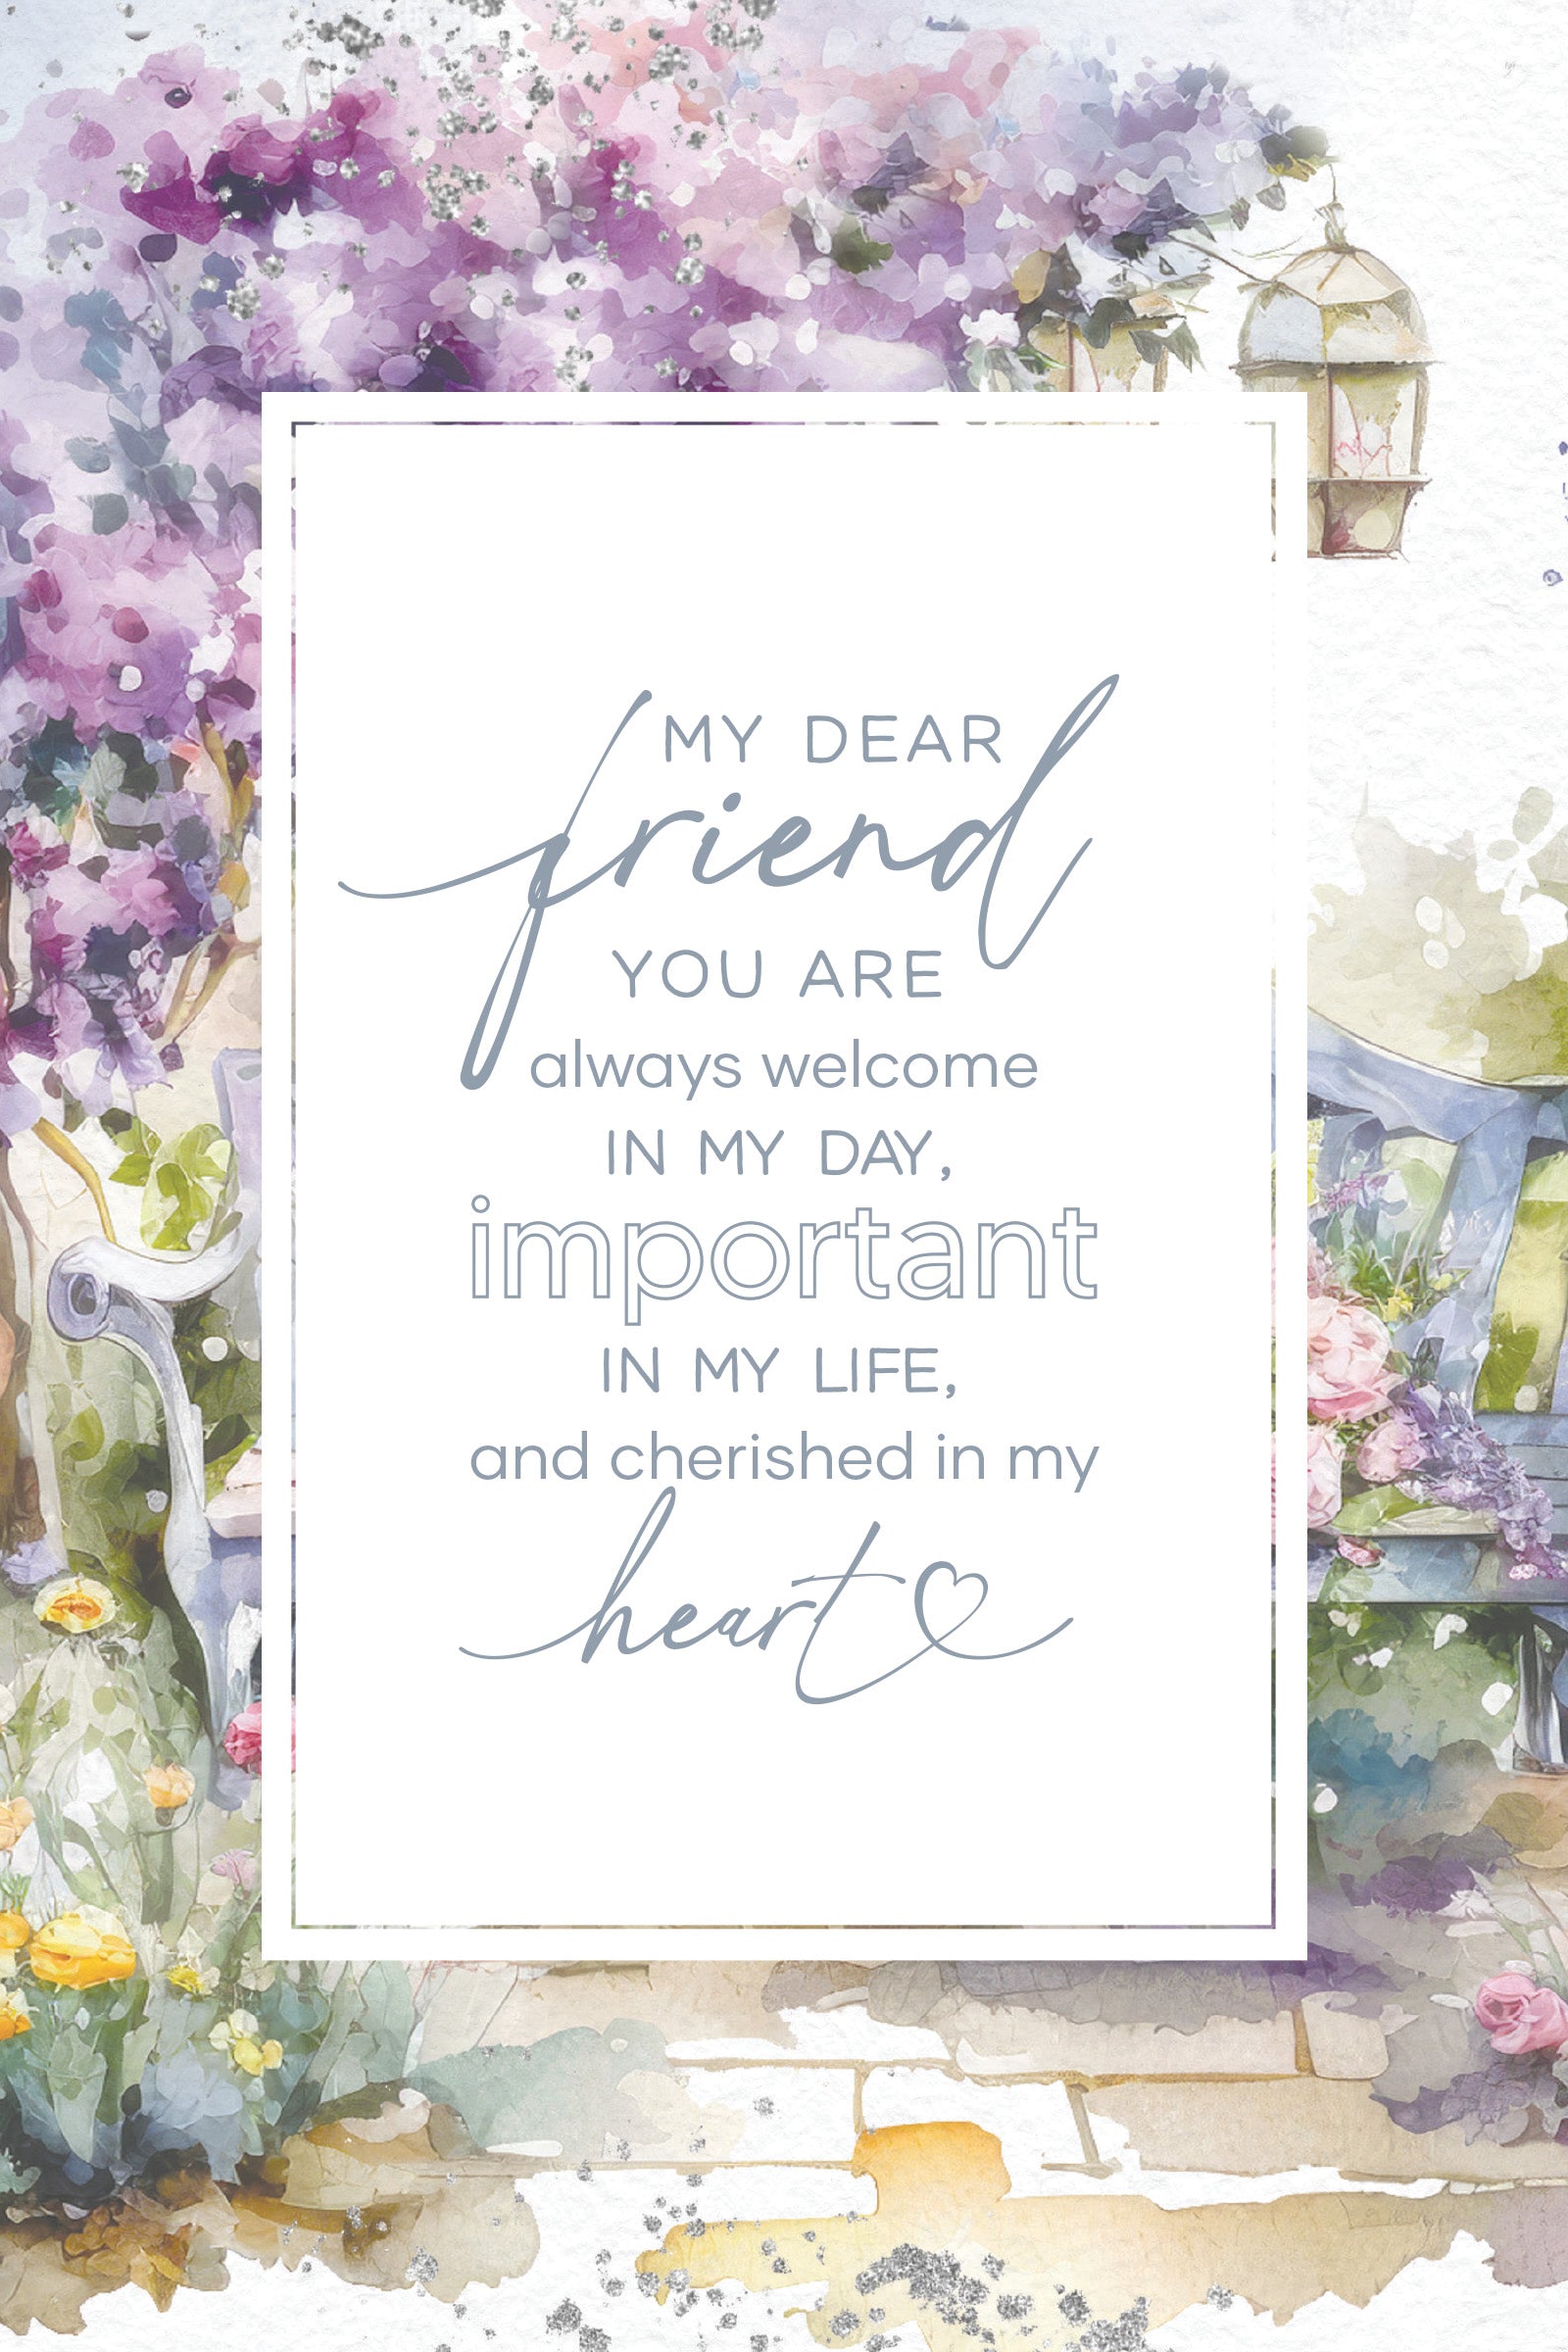 MY DEAR
friend
YOU ARE
always welcome
IN MY DAY,
important
IN MY LIFE,
and cherished in my
heart